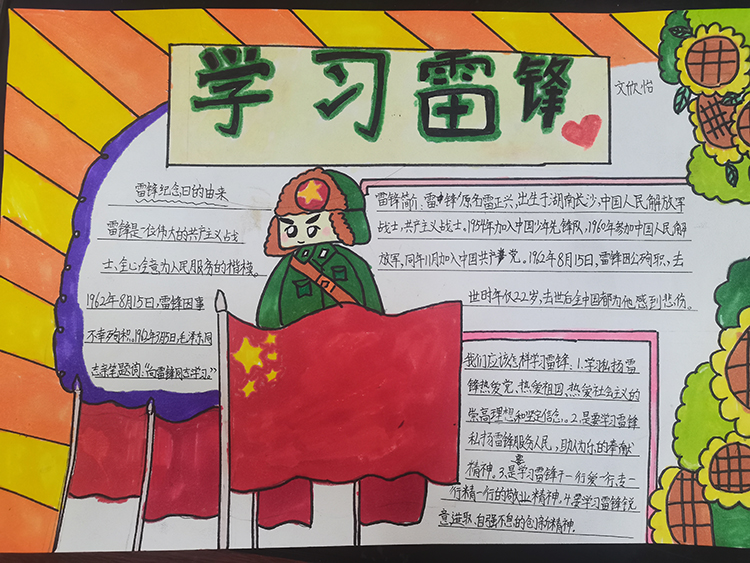 学习雷锋
文欣怡
雷锋纪念日的由来
雷锋是一位伟大的共产主义战
士、全心全意为人民服务的楷模。
1962年8月15日,雷锋因事
不幸殉积,1963年3月5日毛泽东同
志亲笔题词:“向雷锋同志学习。”
雷锋简介:雷锋原名雷正兴,出生于湖南长沙,中国人民解放军
战士,共产主义战士,1954年加入中国少年先锋队,1960年参加中国人民解
放军,同年11月加入中国共产党。1962年8月15日,雷锋因公殉职,去
世时年仅22岁,去世后全中国都为他感到悲伤。
我们应该怎样学习雷锋:1.学习弘扬雷
锋热爱党、热爱祖国、热爱社会主义的
崇高理想和坚定信念。2.是要学习雷锋
弘扬雷锋服务人民、助人为乐的奉献
精神。3.是要学习雷锋干一行爱一行、专一
行精一行的敬业精神。4.要学习雷锋锐
意进取、自强不息的创新精神.